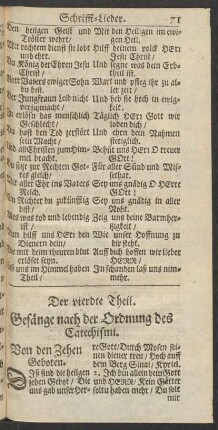 Schrifft-Lieder. 71
Den heilgen Geist
Tröster wehrt.
Mit rechtem dienst sie lobt
und ehrt.
Du König der Ehren Jesu
Christ /
Gott Vaters ewiger Sohn
bist.
Der Jungfraun leib nicht
verschmacht /
Zu erlösn das menschlich
Geschlecht.
Du hast dem Tod zerstört
sein Macht /
Und all Christen zum Him-
mel bracht.
Du sitzt zur Rechten Got-
tes gleich /
Mit aller Ehr ins Vaters
Reich.
Ein Richter du zukünfftig
bist /
Alles was tod und lebendig
ist.
Nun hilff uns HErr den
Dienern dein /
Die mit deim theuren blut
erlöset seyn.
Laß uns im Himmel haben
Theil /
Mit den Heilgen im ewi-
gen Heil.
Hilff deinem volck HErr
Jesu Christ /
Und segne was dein Erb-
theil ist.
Wart und pfleg ihr zu al-
ler zeit.
Und heb sie hoch in ewig-
keit.
Täglich HErr Gott wir
loben dich /
Und ehrn dein Nahmen
stetiglich.
Behüt uns heut O treuer
GOtt /
Für aller Sünd und Misse-
that.
Sey uns gnädig O HErre
GOtt /
Sey uns gnädig in aller
Noht.
Zeig uns deine Barmher-
tzigkeit /
Wie unser Hoffnung zu
dir steht.
Auff dich hoffen wir lieber
HERR /
In schanden laß uns nim-
mehr.
Der vierdte Theil.
Gesänge nach der Ordnung des
Catechismi.
Von den Zehen
Geboten.
Diß sind die heilgen
zehen Gebot / Die
uns gab unser Her-
re Gott / Durch Mosen sei-
nen diener treu / Hoch auff
dem Berg Sinai / Kyriel.
2. Ich bin allein dein Gott
und HERR / Kein Götter
soltu haben mehr / Du solt
mit